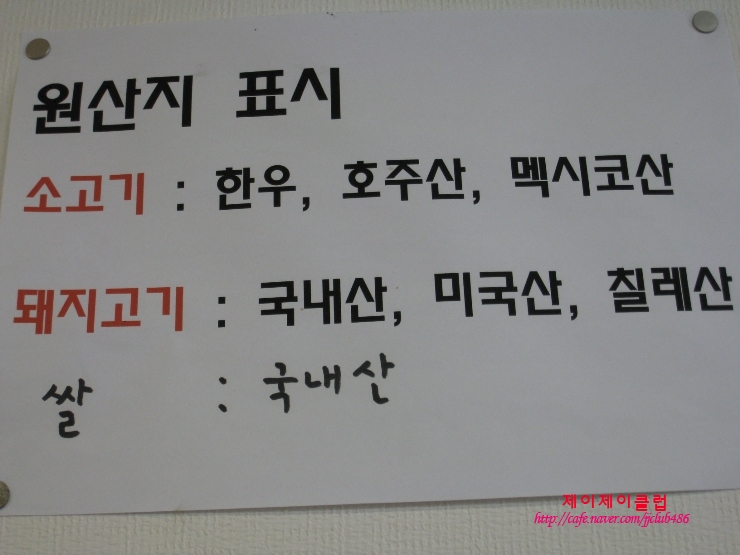 원산지 표시
소고기 : 한우, 호주산, 멕시코산
돼지고기 : 국내산, 미국산, 칠레산
쌀 : 국내산
제이제이클럽
http://cafe.naver.com/jjclub486